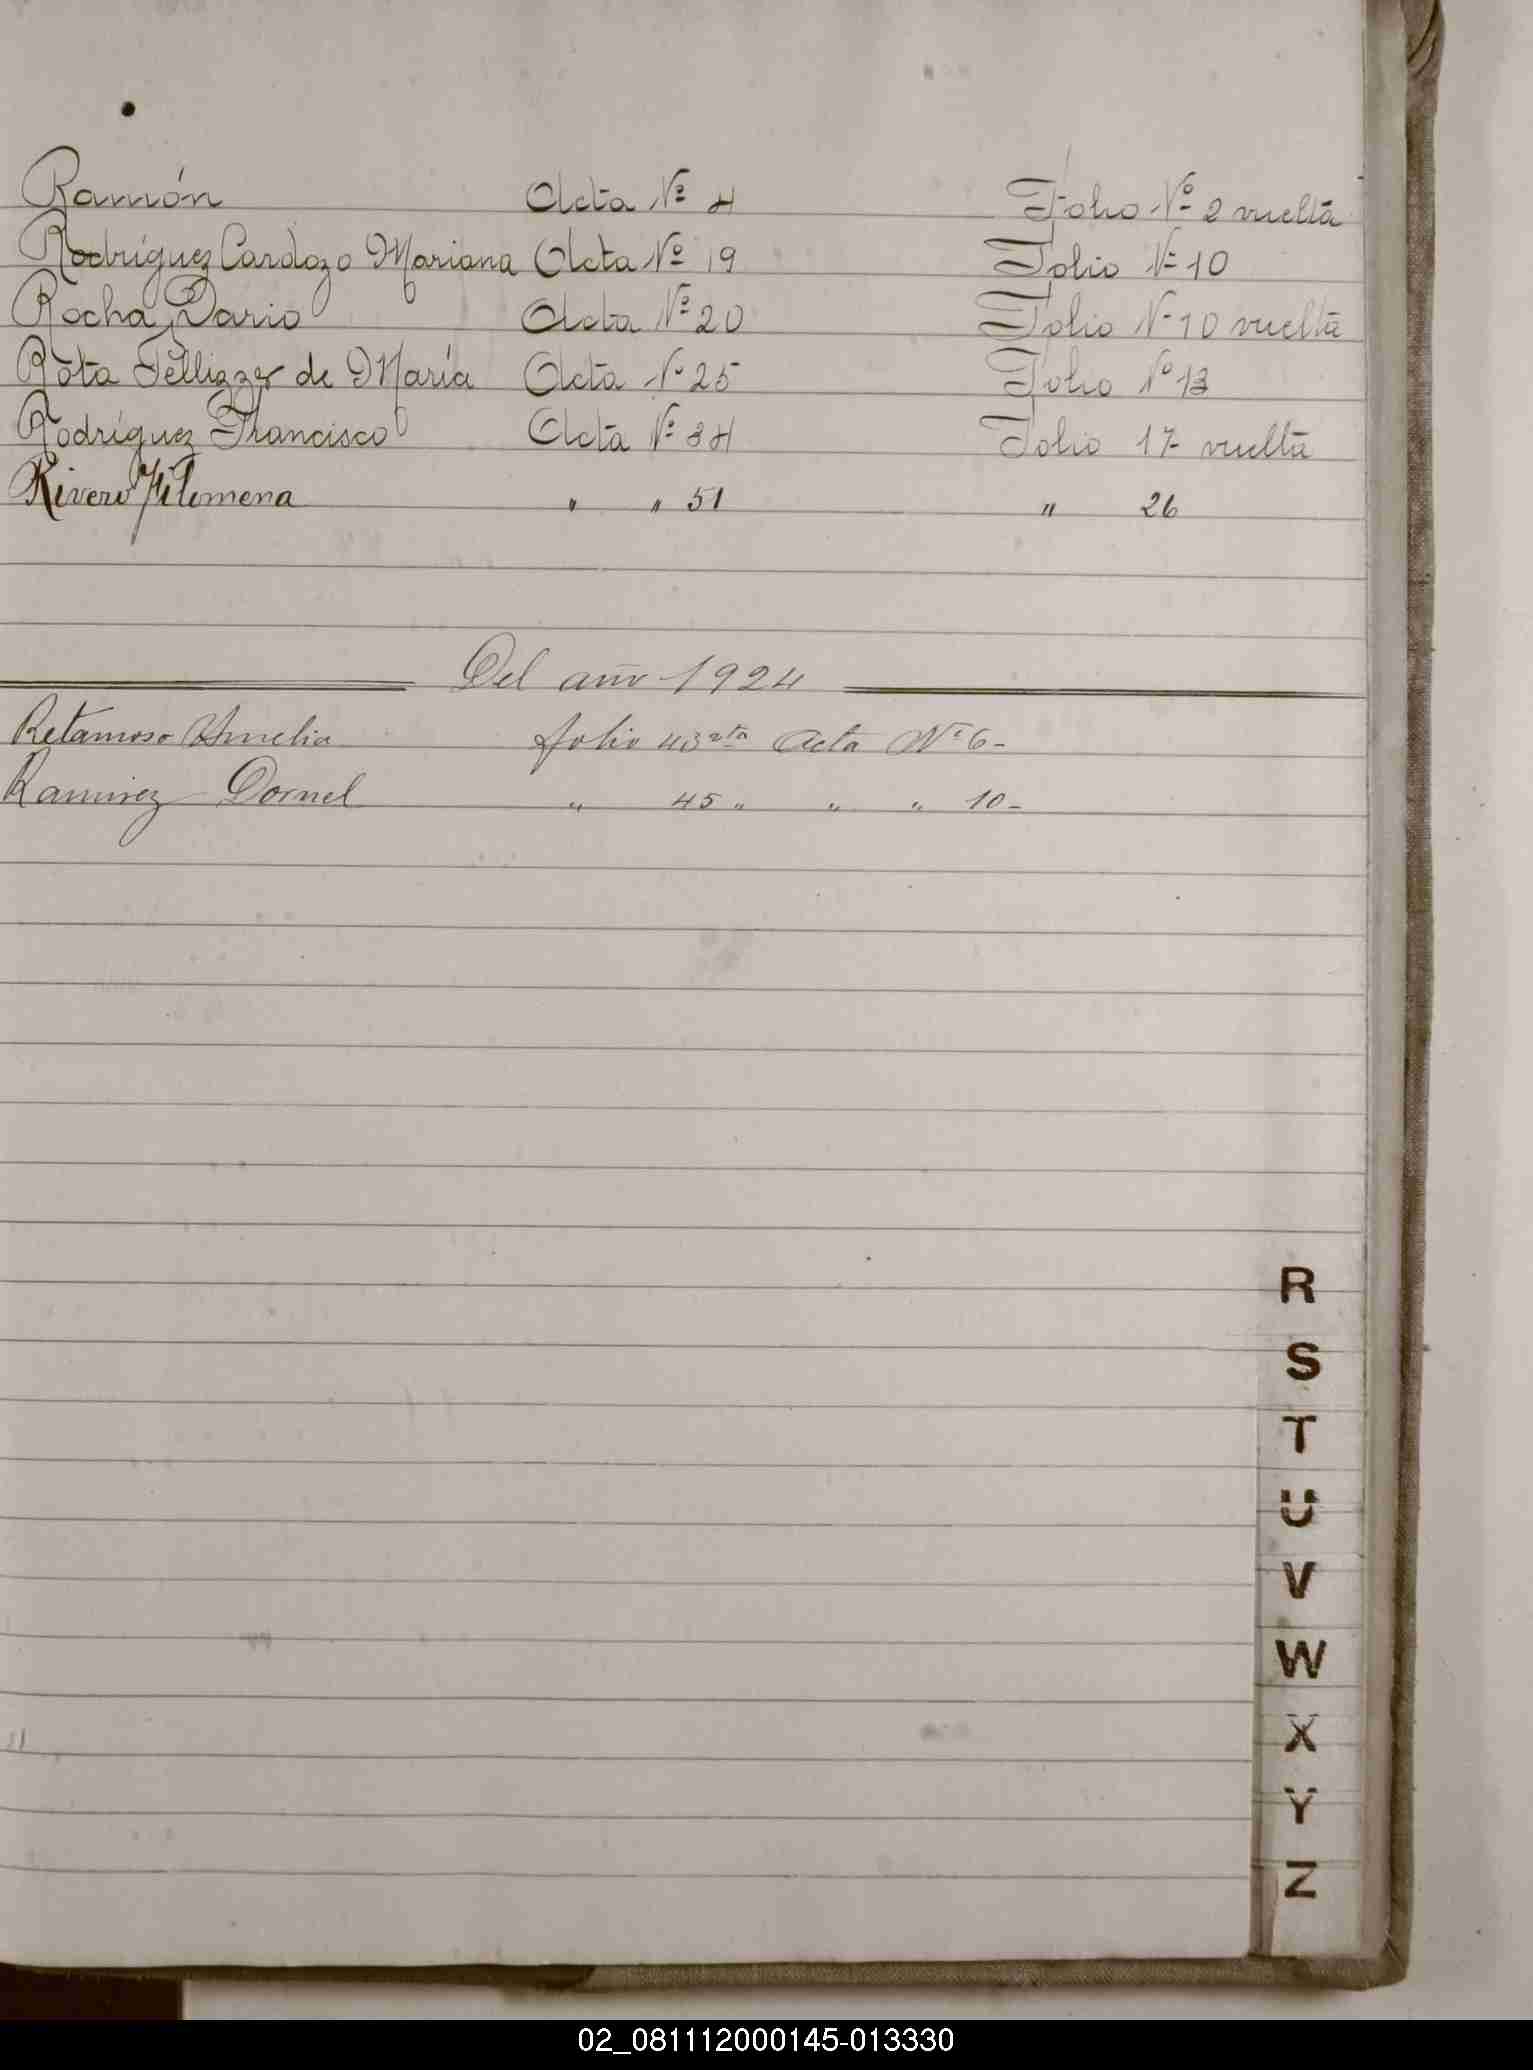 Ramón Acta Nº 4 Folio Nº 2 vuelta
Rodríguez Cardozo Mariana Acta Nº 19 Folio Nº 10
Rocha Dario Acta Nº 20 Folio Nº 10 vuelta
Rota Pellizzer de María Acta Nº 25 Folio Nº 13
Rodríguez Francisco Acta Nº 34 Folio 17 vuelta
Rivero Filomena " " 51 " 26
Del año 1924
Retamoso Amelia folio 43 vta Acta Nº 6-
Ramirez Dornel " 45 " " " 10-
R
S
T
U
V
W
X
Y
Z
02_081112000145-013330